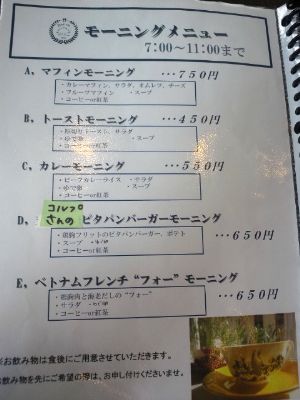 モーニングメニュー
7:00～11:00まで
A、マフィンモーニング ･･･750円
・カレーマフィン、サラダ、オムレツ、チーズ
・フルーツマフィン ・スープ
・コーヒーor紅茶
B、トーストモーニング ･･･450円
・厚切りトースト、サラダ
・ゆで卵 ・スープ
・コーヒーor紅茶
C、カレーモーニング ･･･550円
・ビーフカレーライス ・サラダ
・ゆで卵 ・スープ
・コーヒーor紅茶
D、コルプさんの ピタパンバーガーモーニング
・鶏胸フリットのピタパンバーガー、ポテト
・スープ
・コーヒーor紅茶
･･･650円
E、ベトナムフレンチ“フォー”モーニング
・鶏胸肉と海老だしの“フォー”
・サラダ
・コーヒーor紅茶
･･･650円
※お飲み物は食後にご用意させていただきます。
お飲み物を先にご希望の際は、お申し付けくださいませ。